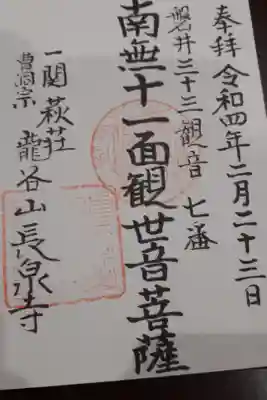 奉拝 令和四年二月二十三日
磐井三十三観音 七番
南無十一面観世音菩薩
一関萩荘
曹洞宗 龍谷山長泉寺